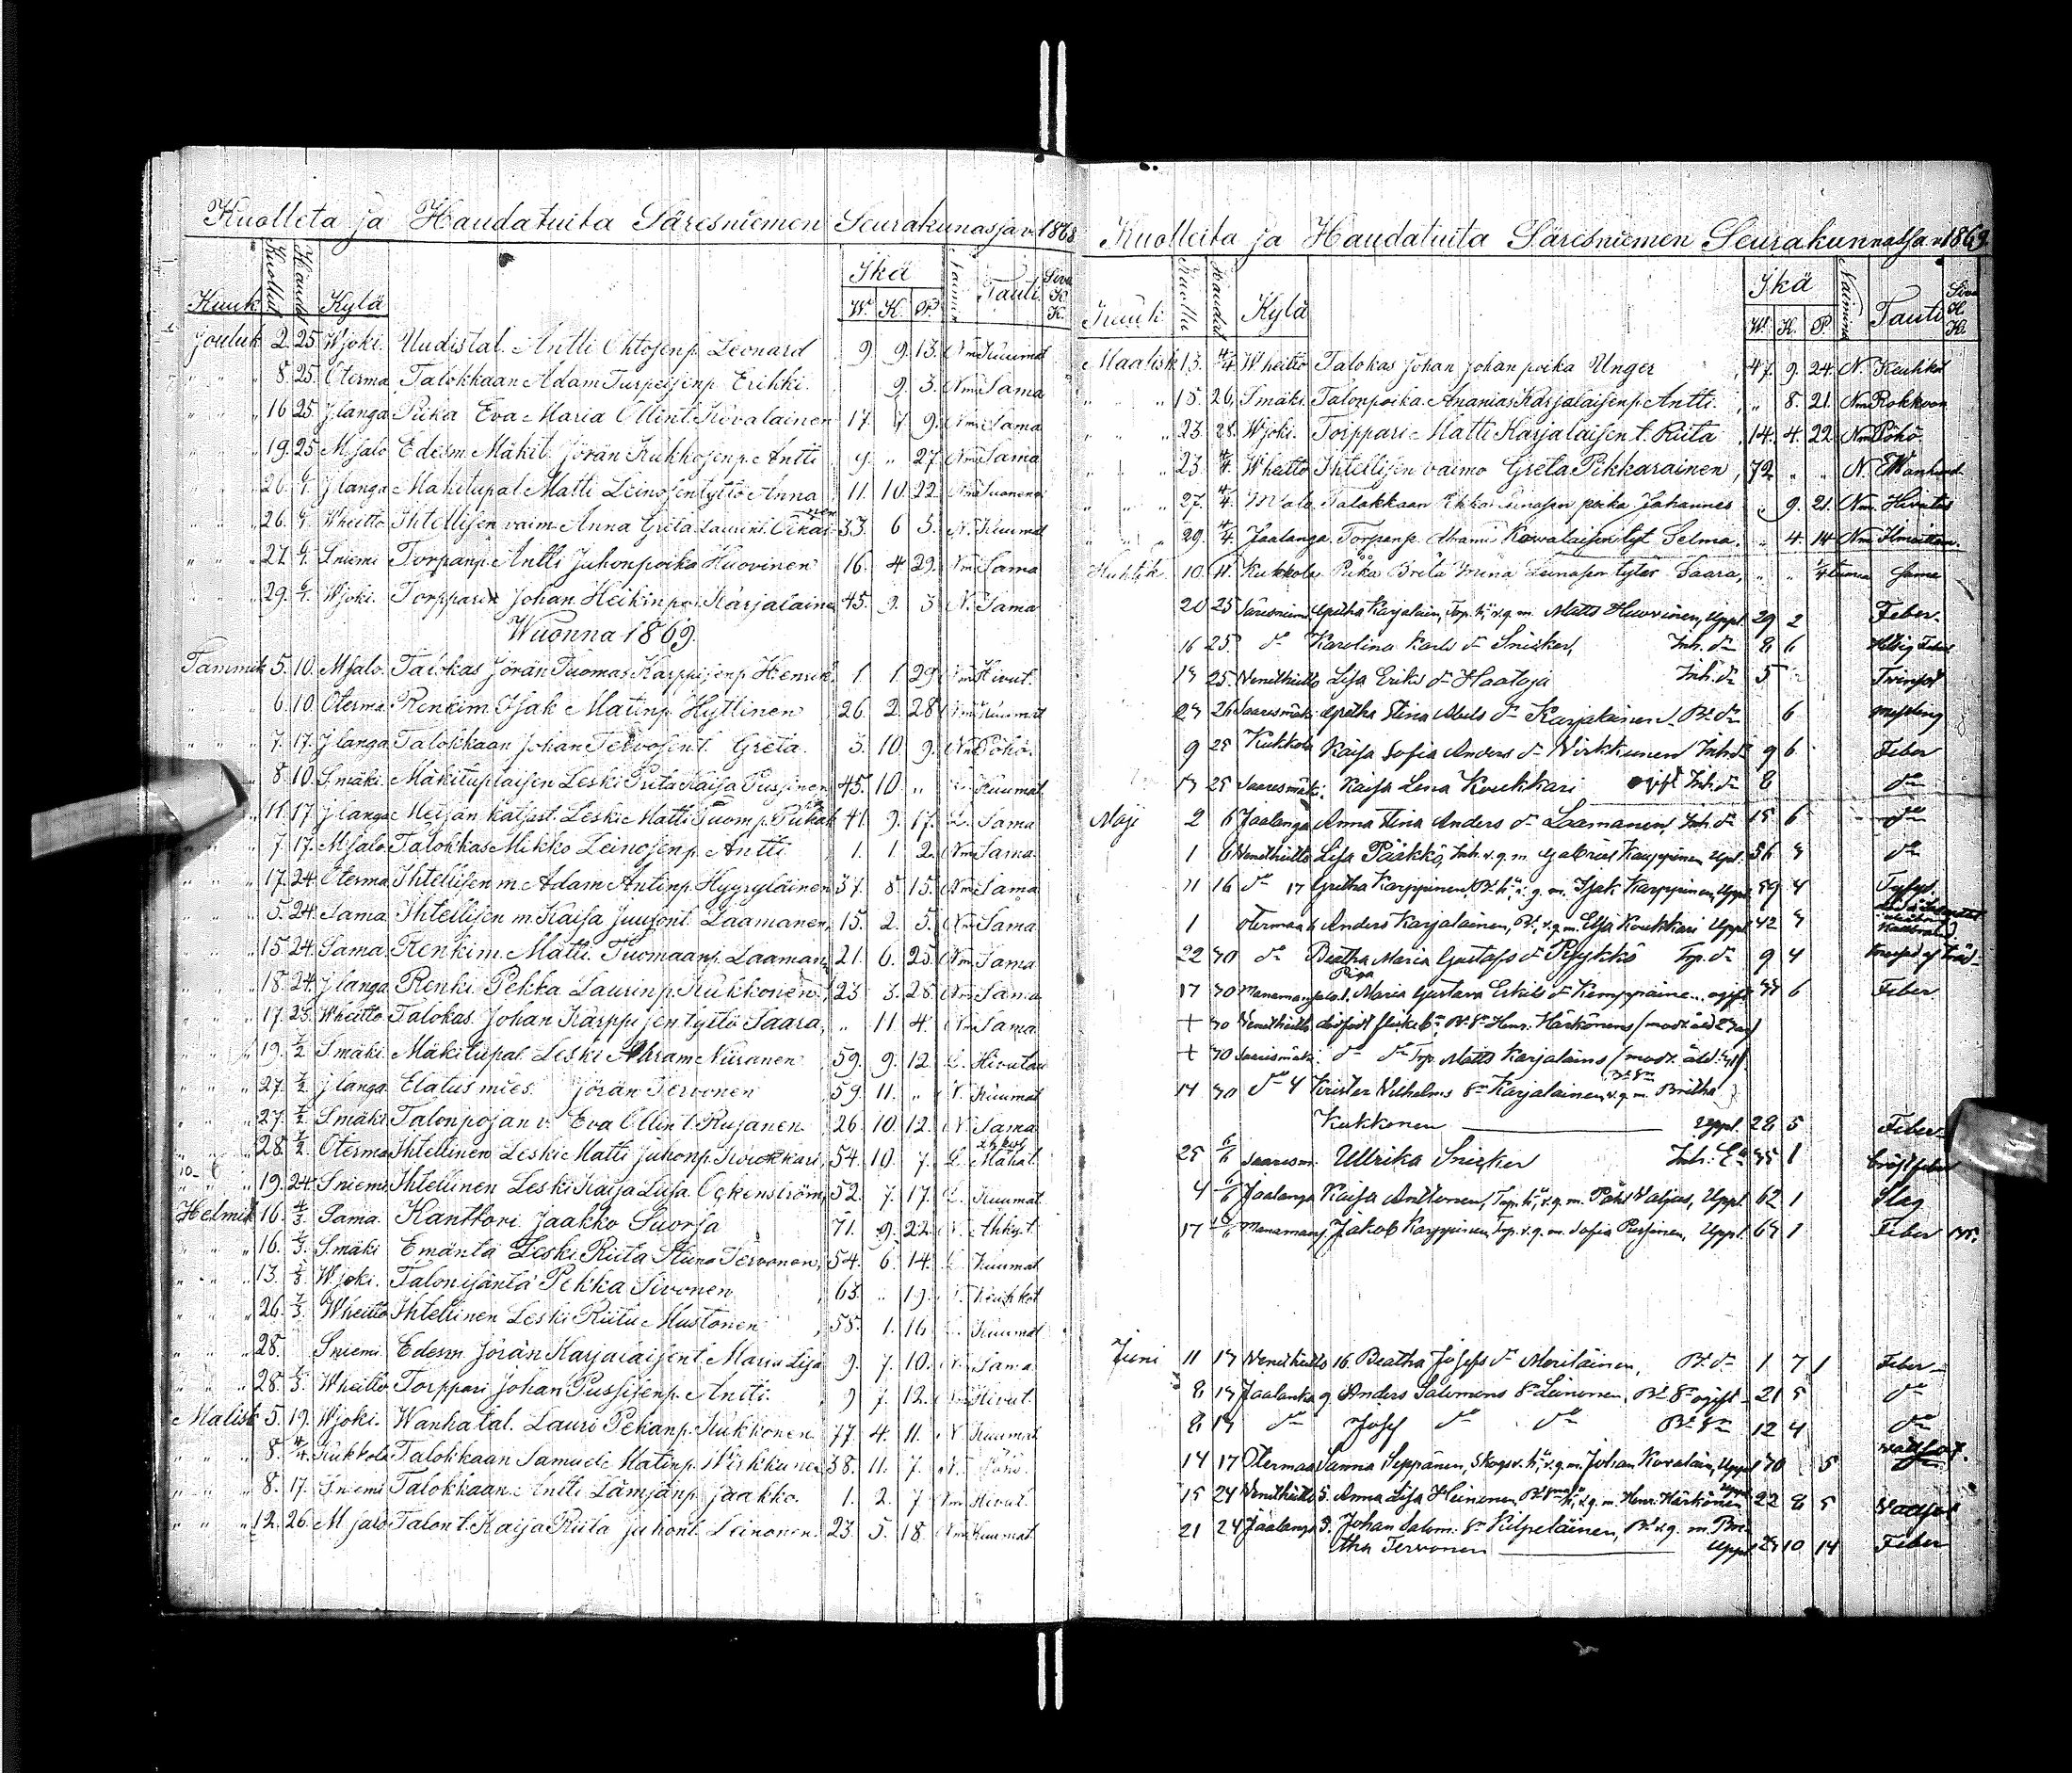 Kuolleta ja Haudatuita Säresniemen Seurakunasja v. 1868
Kuuk. Kuollut Haudat. Kylä Ikä W. K. P. Tauti Sivu K. K.
Jouluk 2. 25. Wjoki. Uudistal. Antti Ohtosenp. Leonard 9. 9. 13. Nm Kuumat
" " " 8. 25. Oterma Talokkaan Adam Turpeisenp. Erikki. 9. 3. Nm Sama
" " " 16 25. Jlanga Piika Eva Maria Ollint. Kovalainen 17. 7 9. Nm Sama
" " " 19. 25 Msalo Edesm. Mäkit. Jörän Kukkosenp. Antti 9. " 27. Nm Sama
" " " 26. 6/1. Jlanga Mäkitupal. Matti Leinosen tyttö Anna 11. 10. 22. Nm
" " " 26. 6/1. Wheitto Ihtellisen vaim. Anna Greta Laurint. 33. 6 5. N. Kuumat
" " " 27. 6/1. Sniemi Torpanp. Antti Juhonpoika Huovinen 16. 4 29. Nm Sama
" " " 29. 6/1. Wjoki. Torppari Johan Heikinpoi. Karjalaine 45. 9. 3 N. Sama
Wuonna 1869.
Tammik 5. 10. Msalo. Talokas Jörän Tuomas Karppisenp. Henrik 1. 1. 29 Nm Hivut.
" " " 6. 10. Oterma Renkim. Isak Matinp. Hyttinen 26. 2. 28 Nm Kuumat
" " " 7. 17. Jlanga Talokkaan Johan Tervosen t. Greta. 3. 10. 9. Nm Pöhö.
8. 10. Smäki. Mäkitupalaisen Leski Priita Kaisa Pussinen 45. 10. " Kuumat
" 11. 17. Jlanga Metsän katjast. Leski Matti Tuom.p. 41. 9. 17. L. Sama
" " 7. 17. Msalo Talokkas Mikko Leinosenp. Antti 1. 1. 2. Nm Sama.
" " " 17. 24. Oterma Ihtellisen m. Adam Antinp. Hyyryläinen 37. 8. 15. Nm Sama
" " " 5. 24. Sama. Ihtellisen m. Kaisa Juusont. Laamanen, 15. 2. 5. Nm Sama
" " " 15. 24. Sama. Renkim. Matti Tuomaanp. Laamane 21. 6. 25. Nm Sama
" " " 18. 24. Jlanga Renki. Pekka Laurinp. Kukkonen 23 3. 28 Nm Sama
" " " 17. 25. Wheitto Talokas Johan Karppisen tyttö Saara, " 11. 4. Nm Sama
" " " 19. 7/2 Smäki Mäkitupal. Leski Abram Niiranen 59. 9. 12. L. Hivutau
" " " 27. 7/2 Jlanga Elatus mies. Jörän Tervonen 59. 11. " N. Kuumat
" " " 27. 7/2 Smäki Talonpojan v. Eva Ollin t. Rusanen 26. 10. 12. N. Sama
" " " 28. 7/2 Oterma Ihtellinen Leski Matti Juhonp. Koukkari, 54. 10. 7. L.
19. 24. Sniemi Ihtellinen Leski Kaisa Liisa Ockenström, 52. 7. 17. L. Kuumat
Helmik 16. 4/3. Sama. Kanttori Jaakko Suorsa 71. 9. 22. N.
" " " 16. Smäki Emäntä Leski Riita Stiina Tervonen, 54. 6. 14. L. Kuumat
" " " 13. Wjoki. Talonisäntä Pekka Sivonen 63. " 19. Keuhkot
" " " 26. 7/3. Wheitto Ihtellinen Leski Riitu Mustonen 58. 1. 16 L. Kuumat
" " " 28. Sniemi. Edesm. Jörän Karjalaisen t. Maria Lisa 9. 7. 10. Sama
" " " 28. 7/3. Wheitto Torppari Johan Pussisenp. Antti. 9 7. 12. Hivut.
Malisk 5. 19. Wjoki. Wanhatal. Lauri Pekanp. Kukkonen 77. 4. 11. N Kuumat
" " " 8. 4/4 Kukkola Talokkaan Samuel Matinp. Wirkkunen 38. 11. 7. N. Pöhö.
" " " 8. 17. Sniemi Talokkaan. Antti Lämsänp. Jaakko. 1. 2. 7 Nm Hivut.
" " " 12. 26. Msalo Talon t. Kaisa Riita Juhont. Leinonen. 23. 5. 18. Nm Kuumat
Kuolleita ja Haudatuita Säresniemen Seurakunnassa v. 1869.
Kuuk. Kuollu Haudat. Kylä Ikä W. K. P Naimina Tauti Sivu K. K.
Maalisk 13. 4/4 Wheitto Talokas Johan Johan poika Unger 47. 9. 24. N. Keuhkot
" " " 18. 26. Smäki. Talonpoika. Ananias Karjalaisenp. Antti. " 8. 21. Nm Rokkoon
" " " 23. 28. Wjoki. Torppari Matti Karjalaisen t. Riita 14. 4. 22 Nm Pöhö
" " " 23. 4/4. Wheitto Ihtellisen vaimo Greta Pikkarainen, 72 " " N.
" " " 27. 4/4. Talokkaan poika Johannes " 9. 21. Nm. Hivutus
" " " 29. 4/4. Jaalanga. Torpanp. Abrami Kowalaisen tyt. Selma. " 4. 14 Nm
Huhtik. 10. 11. Kukkola Piika Breta Leinosen tytär Saara, " " Sama
20 25 Säresniemi Gretha Karjalain, Torp. h:u v.g.m. Matts Huovinen, Uppl. 29 2 Feber.
16 25. d:o Karolina Karls d:r Snicker, Inh. d:r 8 6 Feber
19 25. Venetheitto Lisa Eriks d:r Haataja Inh. d:r 5
27 26 Saaresmäki Gretha Stina Abels d:r Karjalainen B:de d:r 6 messling
9 25 Kukkola Kaisa Sofia Anders d:r Wirkkunen Inh. d:r 9 6 Feber
17 25 Saaresmäki. Kaisa Lena Koukkari ogift Inh. d:r 8 d:o
Maji 2 6 Jaalanga Anna Stina Anders d:r Laamanen Inh. d:r 15 6 d:o
1 6 Venetheitto Lisa Pärkkö, Inh. v.g.m. Gabriel Karppinen Upl. 56 7 d:o
11 16 d:o 17 Gretha Karppinen, B:de h:u v.g.m. Isak Karppinen, Uppl. 59 4
1 Otermaa 6 Anders Karjalainen, B:de, v.g.m. Elsa Koukkari Uppl. 42 7
22 30 d:o Beatha Maria Gustafs d:r Pyykkö Torp. d:r 9 4
Piga
17 30 Manamansalo 1. Maria Gustava Eskils d:r Kemppaine.. ogift 37 6 Feber
+ 30 Venetheitto dödfödt flickeb:n B:de S:n Henr. Härkönens (modr. åld.
+ 30 Saaresmäki. d:o d:o Torp. Matts Karjalains (modr. åld.
14 30 d:o 4 Krister Wilhelms S:n Karjalainen v.g.m. Britha
Kukkonen Uppl. 28 5 Feber
25 6/6 Saaresm. Ullrika Snicker Inh: E:a 35 1 bröstfeber
4 6/6 Jaalanga Kaisa Anttonen, Torp. h:u, v.g.m. Påhl Valjus, Uppl. 62 1 Slag
17 Manamans. Jakob Karppinen, Torp. v.g.m. Sofia Pussinen, Uppl. 67 1 Feber
Juni 11 17 Venetheitto 16. Beatha Josefs d:r Meriläinen, B:de d:r 1 7 1 Feber
8 17 Jaalanka 9 Anders Salomons S:n Leinonen, B:de S:n ogift 21 5 d:o
8 17 d:o Josef d:o d:o B:de S:n 12 4 d:o
14 17 Otermaa Sanna Seppänen, Skogsv. h:u, v.g.m. Johan Kovalain, Uppl. 70 5
15 24 Venetheitto 5. Anna Lisa Heinonen, B:de S:ns h:u, v.g.m. Henr. Härkönen Uppl. 22 8 5
21 24 Jaalanga 3. Johan Salom. S:n Kilpeläinen, B:de v.g.m. Bre-
tha Tervonen Uppl. 27 10 14 Feber